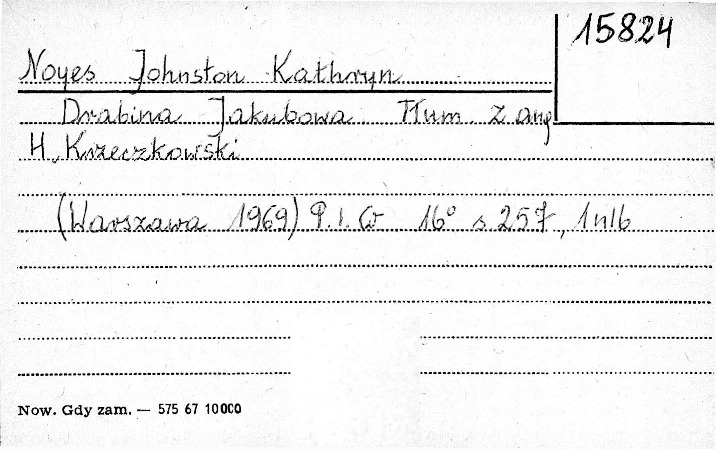 15824
Noyes Johnston Kathryn
Drabina Jakubowa Tłum. z ang
H. Krzeczkowski
(Warszawa 1969) P.I.W 16° s. 257, 1nlb
Now. Gdy zam. — 575 67 10000